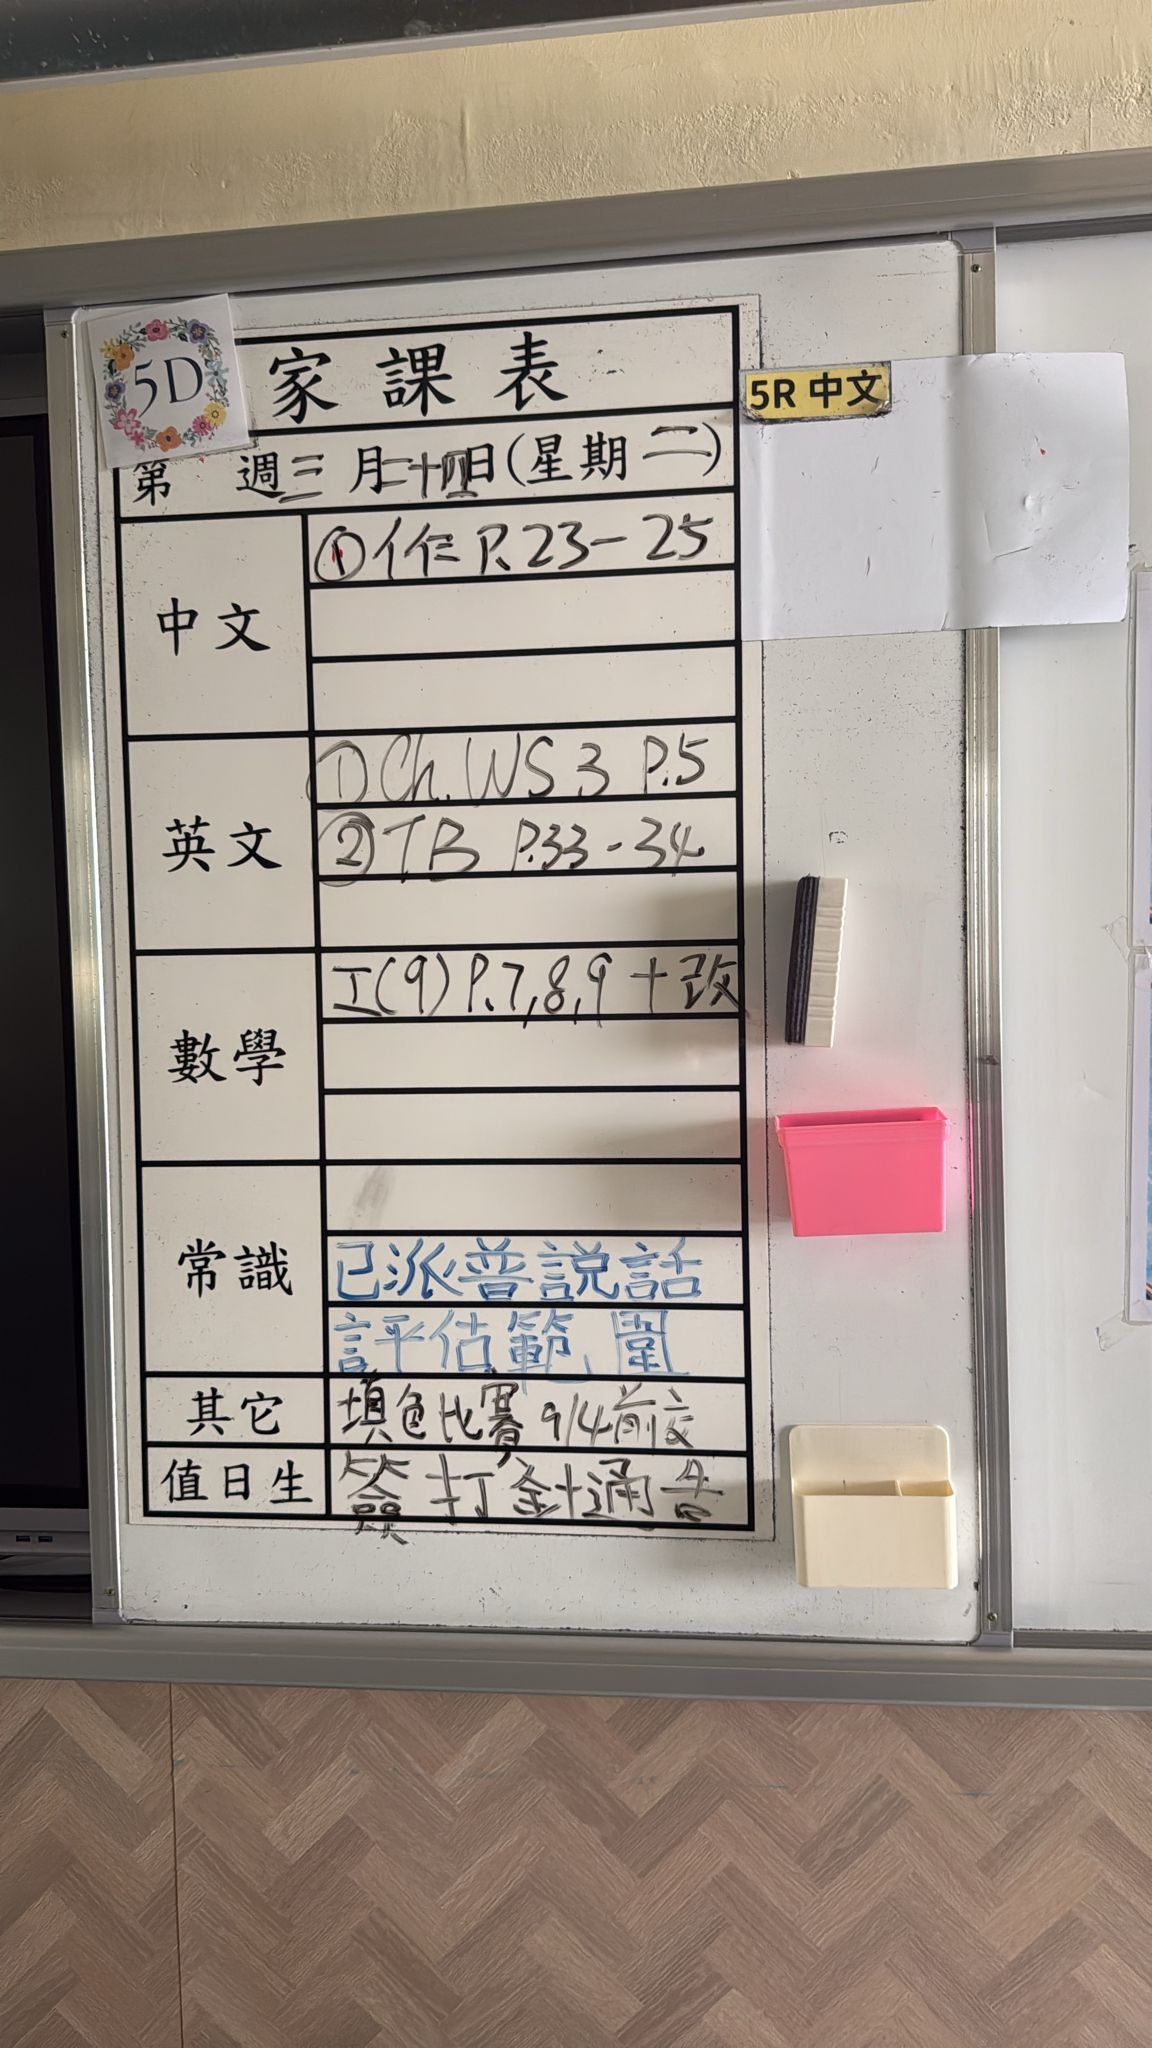 5D
家課表
5R 中文
第 週 三月二十四日(星期二)
中文
① 作 P.23-25
英文
① Ch. WS 3 P.5
② TB P.33-34
數學
工(9) P.7,8,9 + 改
常識
已派普說話
評估範圍
其它
填色比賽 9/4前交
值日生
簽打針通告